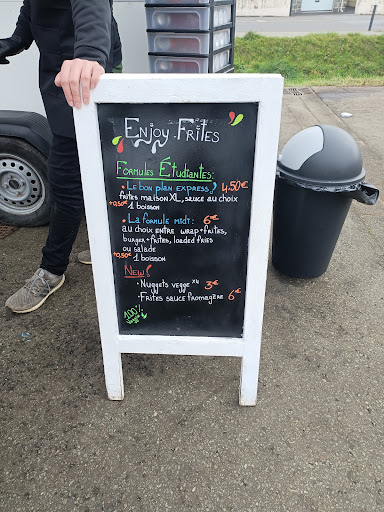 Enjoy Frites
Formules Étudiantes:
• Le bon plan express! 4,50€
frites maison XL, sauce au choix
+0,50€ 1 boisson
• La formule midi: 6€
au choix entre wrap+frites,
burger+frites, loaded fries
ou salade
+0,50€ 1 boisson
New!
• Nuggets veggie x4 3€
• Frites sauce fromagère 6€
100%